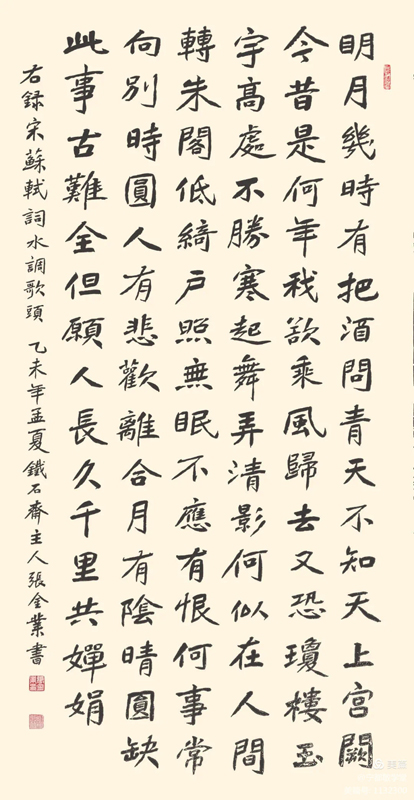 明月幾時有把酒問青天不知天上宮闕
今昔是何年我欲乘風歸去又恐瓊樓玉
宇高處不勝寒起舞弄清影何似在人間
轉朱閣低綺戶照無眠不應有恨何事常
向別時圓人有悲歡離合月有陰晴圓缺
此事古難全但願人長久千里共嬋娟
右錄宋蘇軾詞水調歌頭 乙未年孟夏鐵石齋主人張金業書